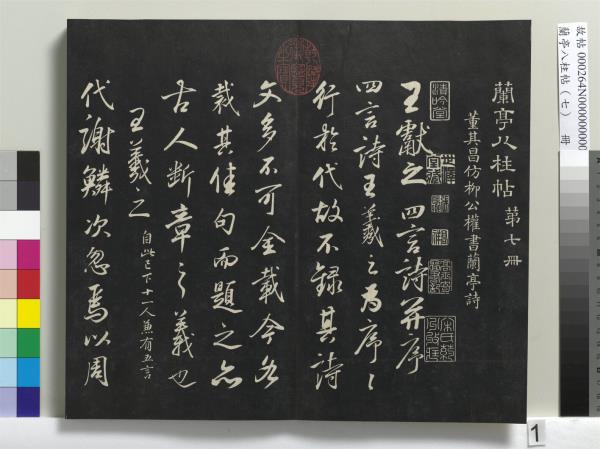 蘭亭八柱帖 第七冊
董其昌仿柳公權書蘭亭詩
王獻之四言詩并序
四言詩王羲之為序序
行於代故不錄其詩
文多不可全載今各
裁其佳句而題之亦
古人斷章之義也
王羲之 自此已下十一人兼有五言
代謝鱗次忽焉以周
故帖 000264N000000000
蘭亭八柱帖（七） 冊
1